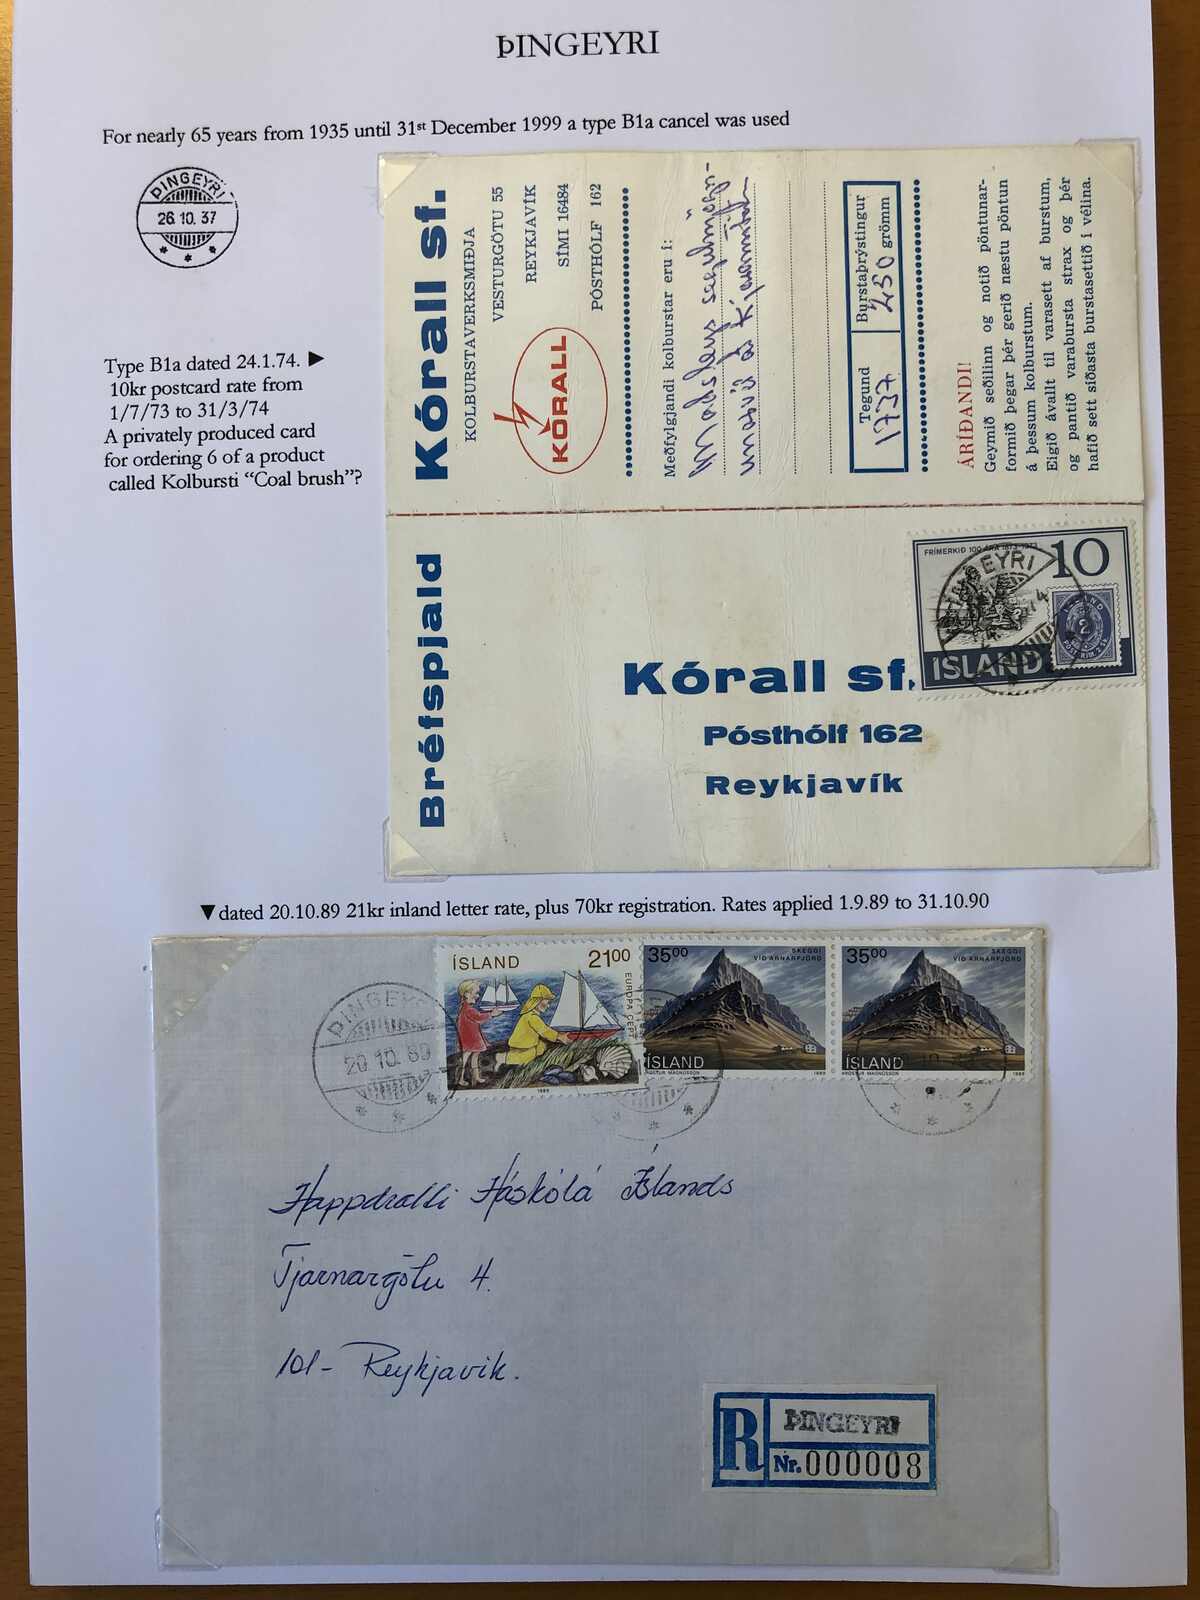 ÞINGEYRI
For nearly 65 years from 1935 until 31st December 1999 a type B1a cancel was used
ÞINGEYRI
26.10.37
Type B1a dated 24.1.74. ▶
10kr postcard rate from
1/7/73 to 31/3/74
A privately produced card
for ordering 6 of a product
called Kolbursti “Coal brush”?
Kórall sf.
KOLBURSTAVERKSMIÐJA
VESTURGÖTU 55
REYKJAVÍK
SÍMI 16484
PÓSTHÓLF 162
KÓRALL
Meðfylgjandi kolburstar eru í:
Tegund
1737
Burstaþrýstingur
250 grömm
ÁRÍÐANDI!
Geymið seðilinn og notið pöntunar-
formið þegar þér gerið næstu pöntun
á þessum kolburstum.
Eigið ávallt til varasett af burstum,
og pantið varabursta strax og þér
hafið sett síðasta burstasettið í vélina.
Bréfspjald
FRÍMERKIÐ 100 ÁRA 1873-1973
10
ÍSLAND
2
ÞINGEYRI
Kórall sf.
Pósthólf 162
Reykjavík
▼dated 20.10.89 21kr inland letter rate, plus 70kr registration. Rates applied 1.9.89 to 31.10.90
ÍSLAND 2100
EUROPA CEPT
1989
3500 SKEGGI
VIÐ ARNARFJÖRÐ
ÍSLAND
ÞRÖSTUR MAGNÚSSON 1989
3500 SKEGGI
VIÐ ARNARFJÖRÐ
ÍSLAND
ÞRÖSTUR MAGNÚSSON 1989
ÞINGEYRI
20.10.89
Happdrætti Háskóla Íslands
Tjarnargötu 4.
101- Reykjavik.
R ÞINGEYRI
Nr. 000008